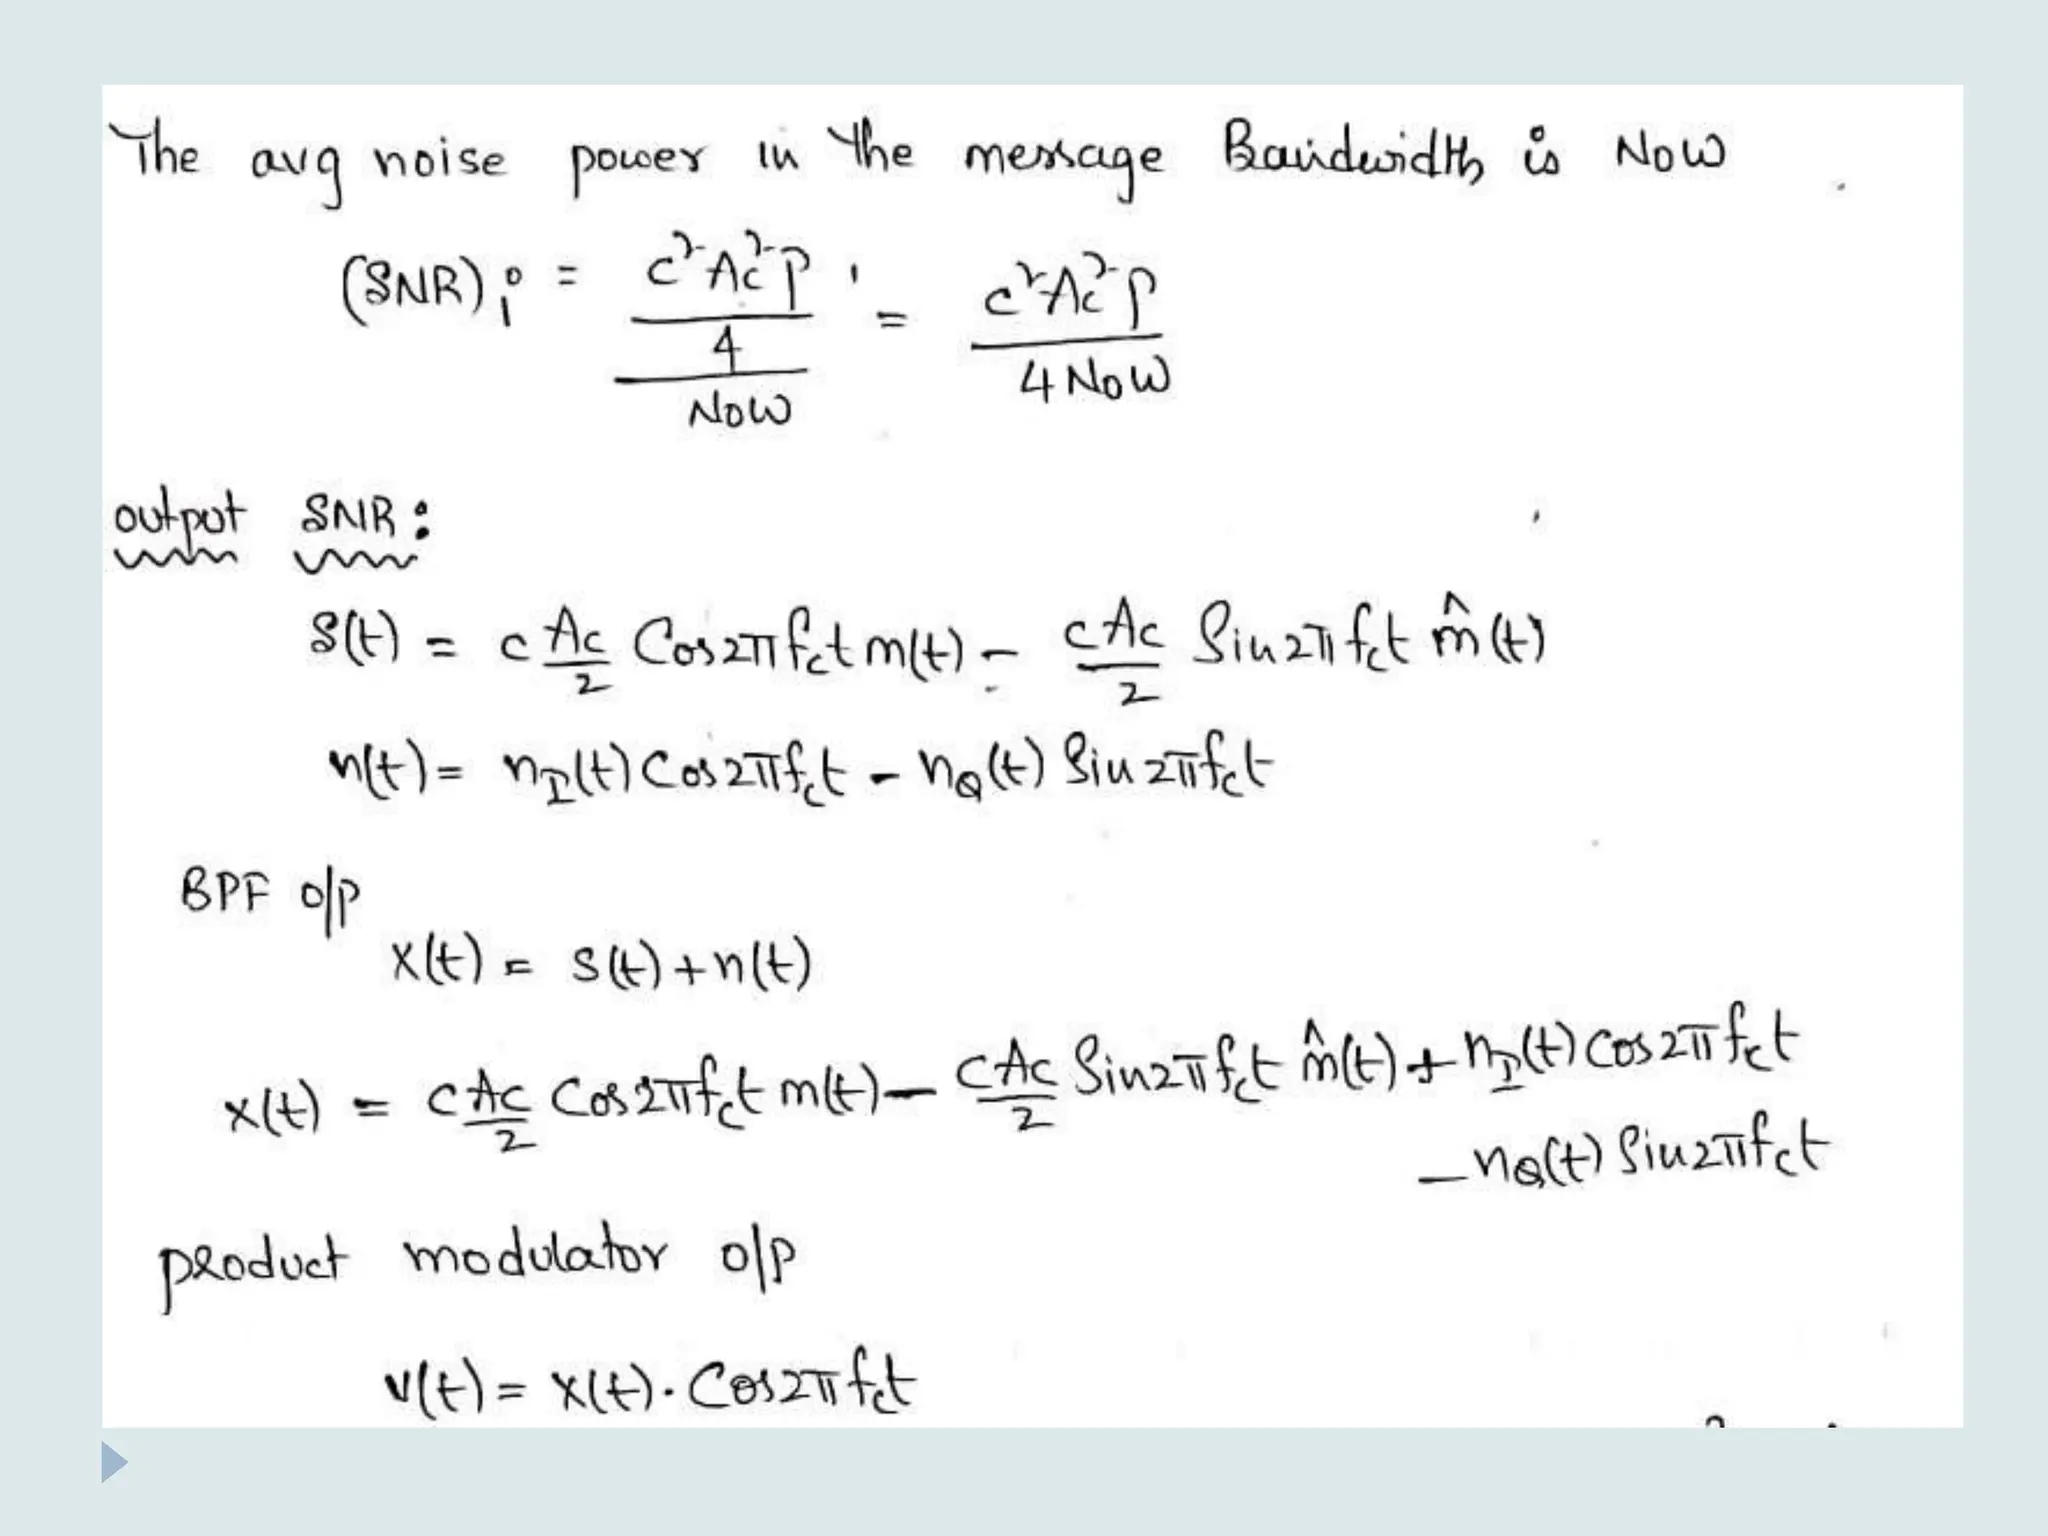 The avg noise power in the message Bandwidth is N₀W
(SNR)ᵢ = (c²Ac²P / 4) / N₀W = c²Ac²P / 4N₀W
output SNR:
s(t) = c Ac/2 Cos2πfct m(t) - cAc/2 Sin2πfct m̂(t)
n(t) = nI(t) Cos2πfct - nQ(t) Sin2πfct
BPF o/p
x(t) = s(t)+n(t)
x(t) = cAc/2 Cos2πfct m(t) - cAc/2 Sin2πfct m̂(t) + nI(t) Cos2πfct
- nQ(t) Sin2πfct
product modulator o/p
v(t) = x(t). Cos2πfct